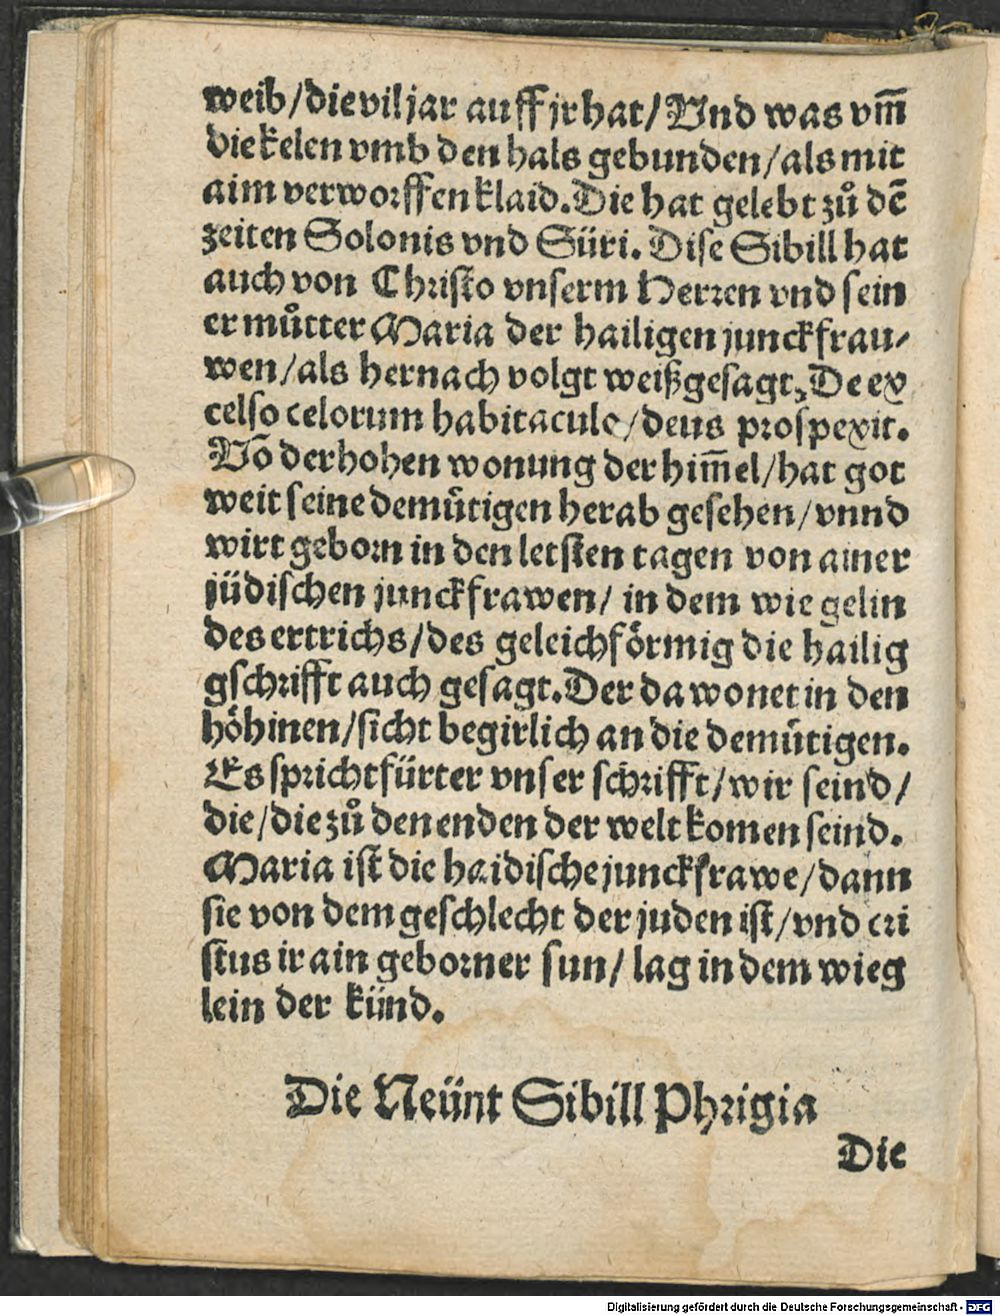 weib/die vil jar auff jr hat/Vnd was vm̃
die kelen vmb den hals gebunden/als mit
aim verworffen klaid.Die hat gelebt zů dē
zeiten Solonis vnd Süri.Dise Sibill hat
auch von Christo vnserm Herren vnd sein
er můtter Maria der hailigen junckfrau⸗
wen/als hernach volgt weißgesagt, De ex
celso celorum habitaculo/deus prospexit.
Võ der hohen wonung der him̃el/hat got
weit seine demuͤtigen herab gesehen/vnnd
wirt geborn in den letsten tagen von ainer
jüdischen junckfrawen/ in dem wiegelin
des ertrichs/des geleichfoͤrmig die hailig
gschrifft auch gesagt.Der da wonet in den
hoͤhinen/sicht begirlich an die demuͤtigen.
Es spricht fürter vnser schrifft/wir seind/
die/die zů den enden der welt komen seind.
Maria ist die haidische junckfrawe/dann
sie von dem geschlecht der juden ist/vnd cri
stus ir ain geborner sun/ lag in dem wieg
lein der künd.
Die Neünt Sibill Phrigia
Die
Digitalisierung gefördert durch die Deutsche Forschungsgemeinschaft - DFG